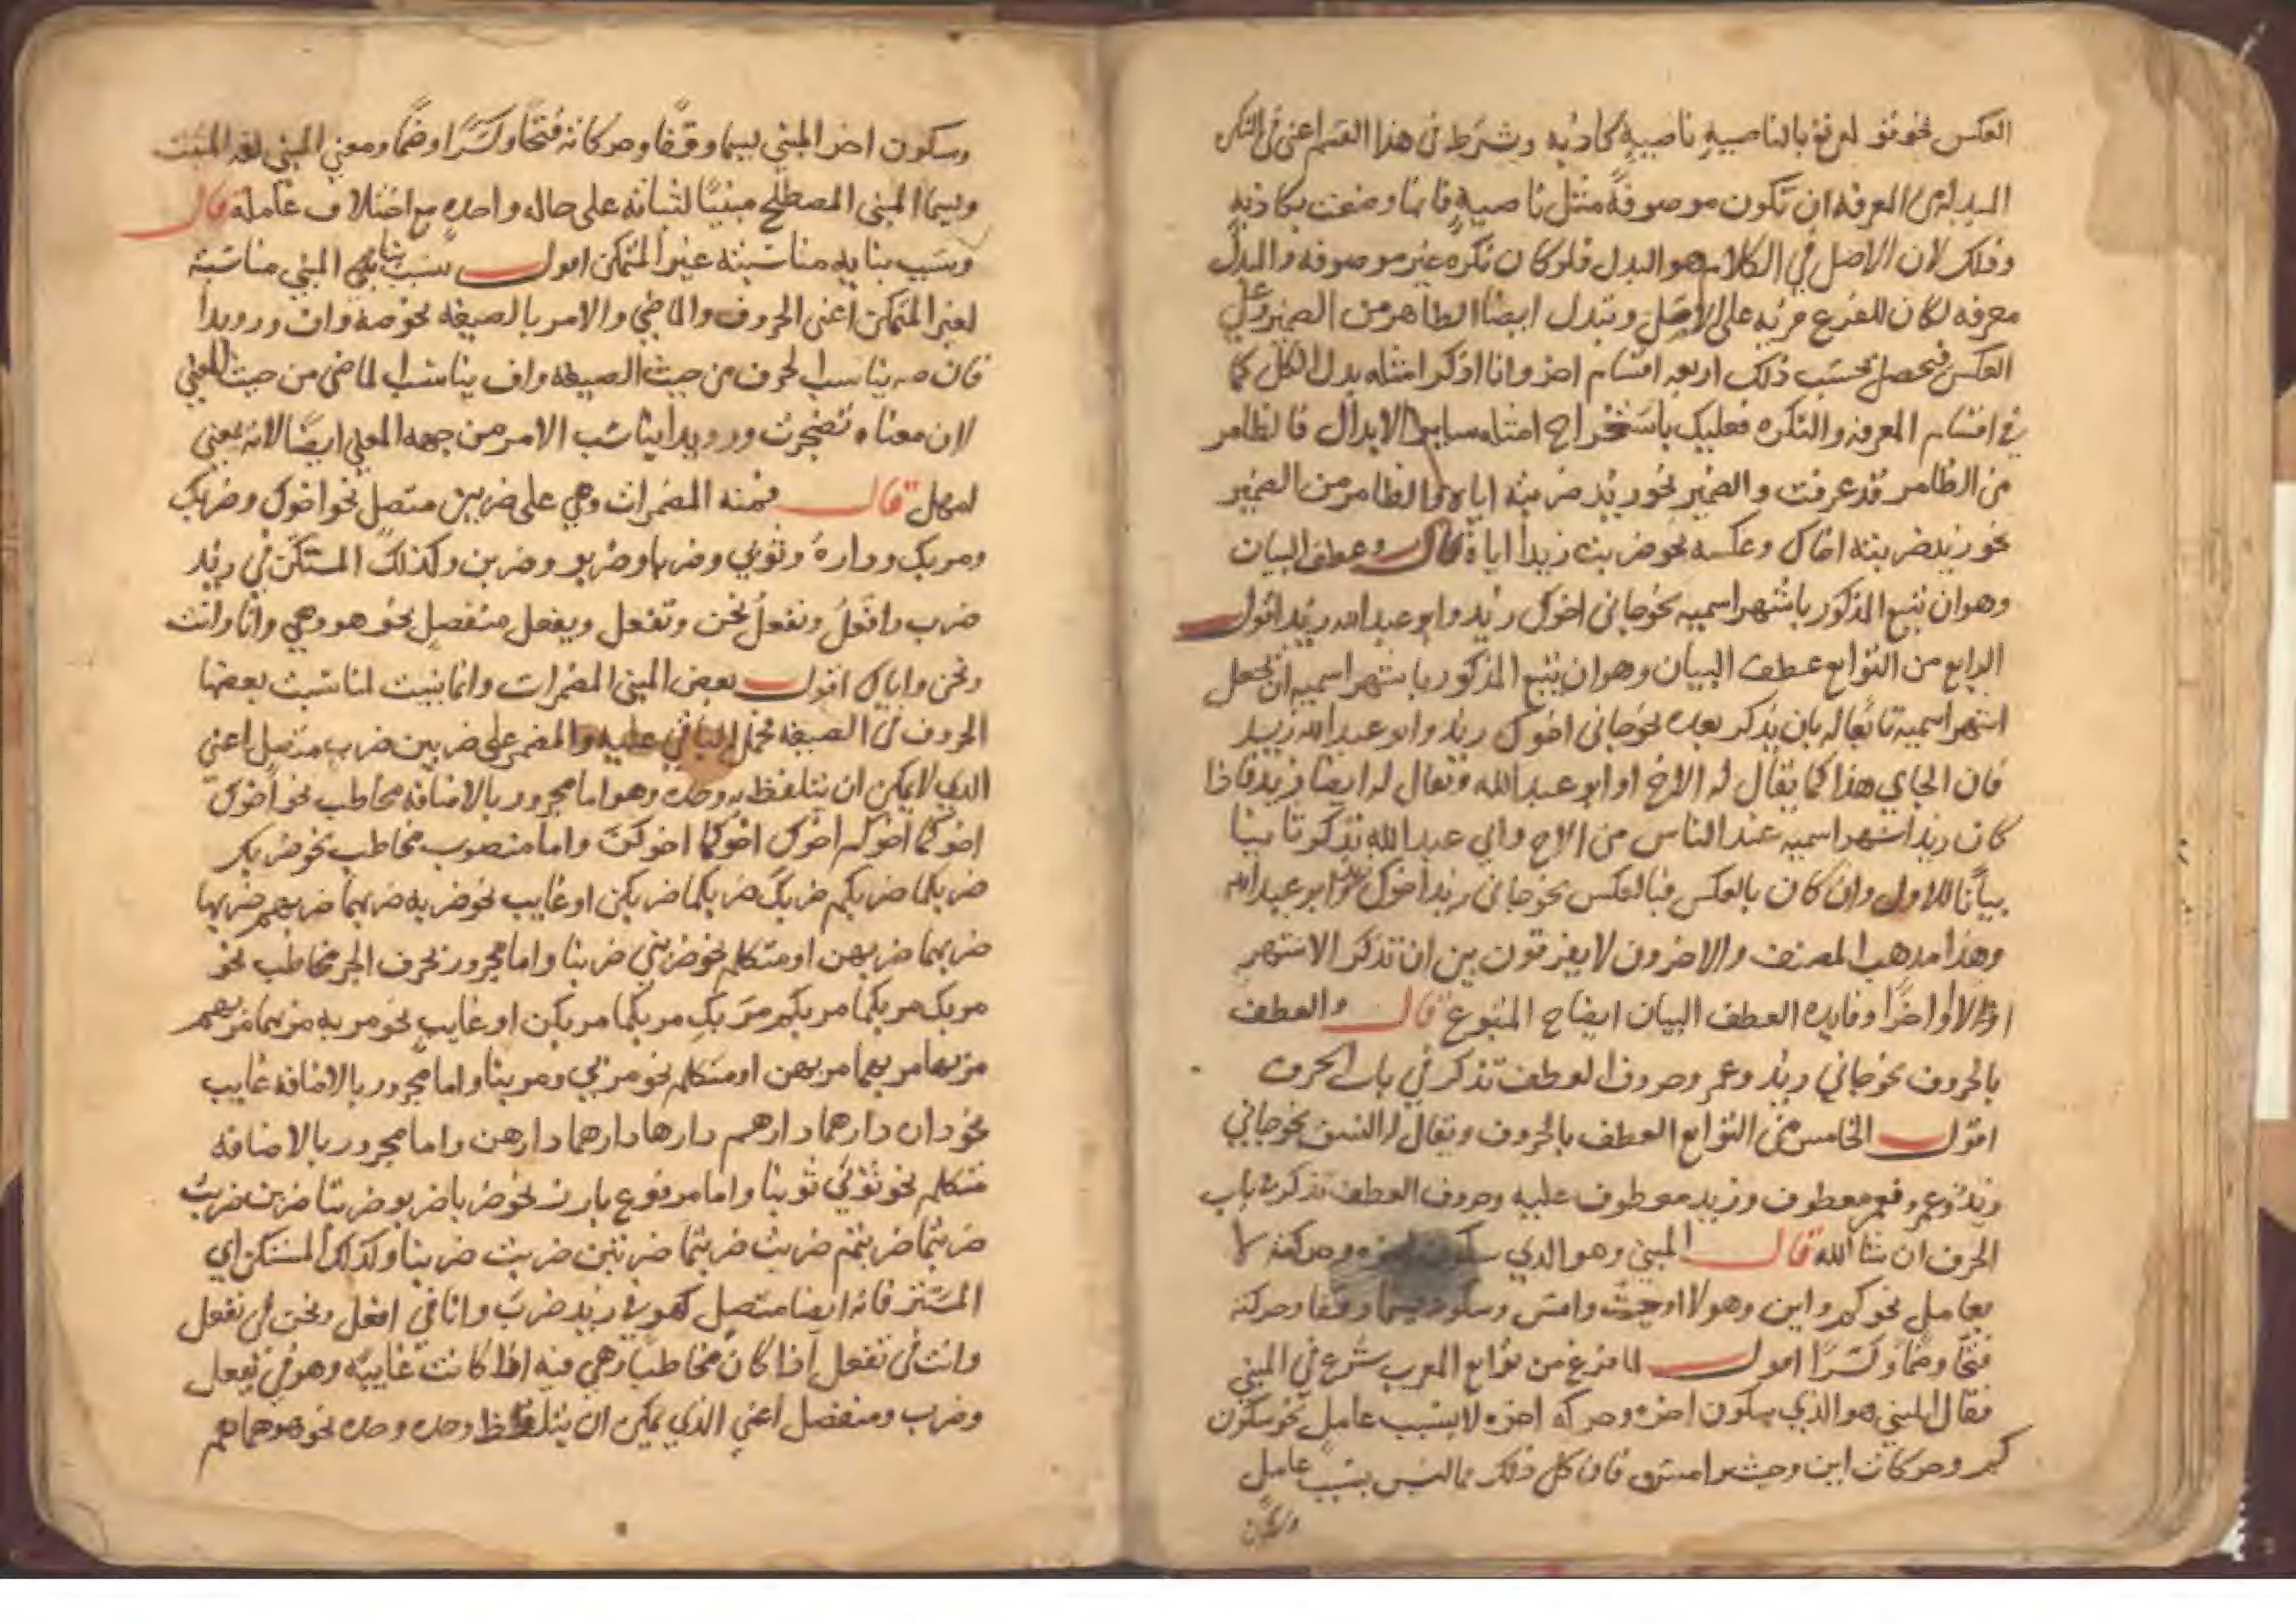 العكس نحو قوله لنسفعا بالناصيه ناصيه كاذبه وشرط في هذا القسم اعني في النكره
المبدله من المعرفه ان تكون موصوفة مثل ناصيه فانها وصفت بكاذبه
وذلك لان الاصل في الكلام هو البدل فلو كان نكره غير موصوفه والمبدل
معرفه لكان للفرع مزيه على الاصل وتبدل ايضا الظاهر من الضمير وعلى
العكس فيحصل بحسب ذلك اربعه اقسام اخر وانا اذكر امثله بدل الكل كما
في اقسام المعرفه والنكره فعليك باستخراج امثله ساير الابدال فالظاهر
من الظاهر قد عرفت والضمير نحو زيد ضربته اياه والظاهر من الضمير
نحو زيد ضربته اخاك وعكسه نحو ضربت زيدا اياه قال وعطف البيان
وهو ان تتبع المذكور باشهر اسميه نحو جاني اخوك زيد وابو عبد الله زيد اقول
الرابع من التوابع عطف البيان وهو ان تتبع المذكور باشهر اسميه ان تجعل
اشهر اسميه تابعا له بان يذكر بعده نحو جاني اخوك زيد وابو عبد الله زيد
فان الجاي هذا كما يقال له الاخ او ابو عبد الله فتقال له ايضا زيد فاذا
كان زيد اشهر اسميه عند الناس من الاخ وابي عبد الله تذكر ثانيا
بيانا للاول وان كان بالعكس فبالعكس نحو جاني زيد اخوك او ابو عبد الله
وهذا مذهب المصنف والاخرون لا يفرقون بين ان تذكر الاشهر
اولا او اخرا وفايده العطف البيان ايضاح المتبوع قال والعطف
بالحروف نحو جاني زيد وعمر وحروف العطف تذكر في باب الحرف
اقول الخامس من التوابع العطف بالحروف ويقال له النسق نحو جاني
زيد وعمرو فعمر معطوف وزيد معطوف عليه وحروف العطف تذكر في باب
الحرف ان شا الله قال المبني وهو الذي سكون اخره وحركته لا
بعامل نحو كم واين وهولا اوحيث وامس وسكونه يسما وقفا وحركته
فتحا وضما وكسرا اقول لما فرغ من توابع المعرب شرع في المبني
فقال المبني هو الذي يكون اخره وحركه اخره لا بسبب عامل نحو سكون
كم وحركات اين وحيث وامس فان كل ذلك مما ليس بسبب عامل
وسكون
وسكون اخر المبني يسما وقفا وحركاته فتحا وكسرا وضما ومعني المبني لغه المثبت
ويسما المبني المصطلح مبنيا لثباته على حاله واحده مع اختلاف عامله قال
وسبب بنايه مناسبته غير المتمكن اقول سبب بنا المبني مناسبته
لغير المتمكن اعني الحروف والماضي والامر بالصيغه نحو صه واف ورويدا
فان صه يناسب الحرف من حيث الصيغه واف يناسب الماضي من حيث المعني
لان معناه تضجرت ورويدا يناسب الامر من جهه المعني ايضا لانه بمعني
امهل قال فمنه المضمرات وهي على ضربين متصل نحو اخوك وضربك
ومر بك وداره وثوبي وضربا وضربو وضربن وكذلك المستكن في زيد
ضرب وافعل ونفعل نحن وتفعل ويفعل منفصل نحو هو وهي وانا وانت
ونحن واياك اقول بعض المبني المضمرات وانما بنيت لمناسبت بعضها
الحروف في الصيغه فحمل الباقي عليه والمضمر على ضربين ضرب متصل اعني
الذي لا يمكن ان يتلفظ به وحده وهو اما مجرور بالاضافه مخاطب نحو اخوك
اخوكما اخوكم اخوك اخوكما اخوكن واما منصوب مخاطب نحو ضربك
ضربكما ضربكم ضربك ضربكما ضربكن او غايب نحو ضربه ضربهما ضربهم ضربها
ضربهما ضربهن او متكلم نحو ضربني ضربنا واما مجرور بحرف الجر مخاطب نحو
مر بك مر بكما مر بكم مر بك مر بكما مر بكن او غايب نحو مر به مر بهما مر بهم
مر بها مر بهما مر بهن او متكلم نحو مر بي ومر بنا واما مجرور بالاضافه غايب
نحو داره دارهما دارهم دارها دارهما دارهن واما مجرور بالاضافه
متكلم نحو ثوبي ثوبنا واما مرفوع بارز نحو ضربا ضربو ضربتا ضربن ضربت
ضربتما ضربتم ضربت ضربتما ضربتن ضربت ضربنا وكذلك المستكن اي
المستتر فانه ايضا متصل كهو في زيد ضرب وانا في افعل ونحن في نفعل
وانت في تفعل اذا كان مخاطبا وهي فيه اذا كانت غايبه وهو في يفعل
وضرب ومنفصل اعني الذي يمكن ان يتلفظ وحده وحده نحو هو هما هم